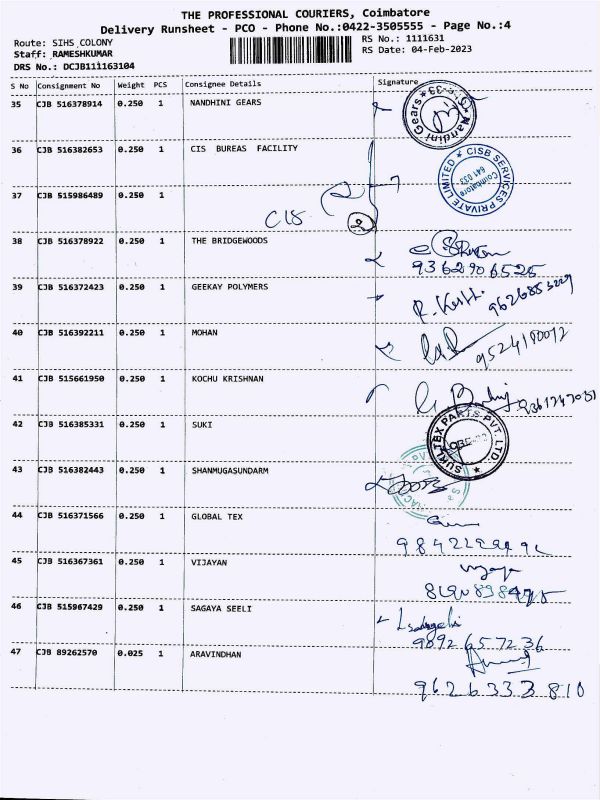 THE PROFESSIONAL COURIERS, Coimbatore
Delivery Runsheet - PCO - Phone No.:0422-3505555 - Page No.:4
Route: SIHS COLONY
Staff: RAMESHKUMAR
DRS No.: DCJB111163104
RS No.: 1111631
RS Date: 04-Feb-2023
S No Consignment No Weight PCS Consignee Details Signature
35 CJB 516378914 0.250 1 NANDHINI GEARS
Nandini Gears
36 CJB 516382653 0.250 1 CIS BUREAS FACILITY
CISB SERVICES PRIVATE LIMITED
Coimbatore
641 033
37 CJB 515986489 0.250 1
CIS
2
38 CJB 516378922 0.250 1 THE BRIDGEWOODS
9362906525
39 CJB 516372423 0.250 1 GEEKAY POLYMERS
40 CJB 516392211 0.250 1 MOHAN
41 CJB 515661950 0.250 1 KOCHU KRISHNAN
42 CJB 516385331 0.250 1 SUKI
SUKI TEX PARTS PVT. LTD.
43 CJB 516382443 0.250 1 SHANMUGASUNDARM
44 CJB 516371566 0.250 1 GLOBAL TEX
45 CJB 516367361 0.250 1 VIJAYAN
46 CJB 515967429 0.250 1 SAGAYA SEELI
9892657236
47 CJB 89262570 0.025 1 ARAVINDHAN
9626333810